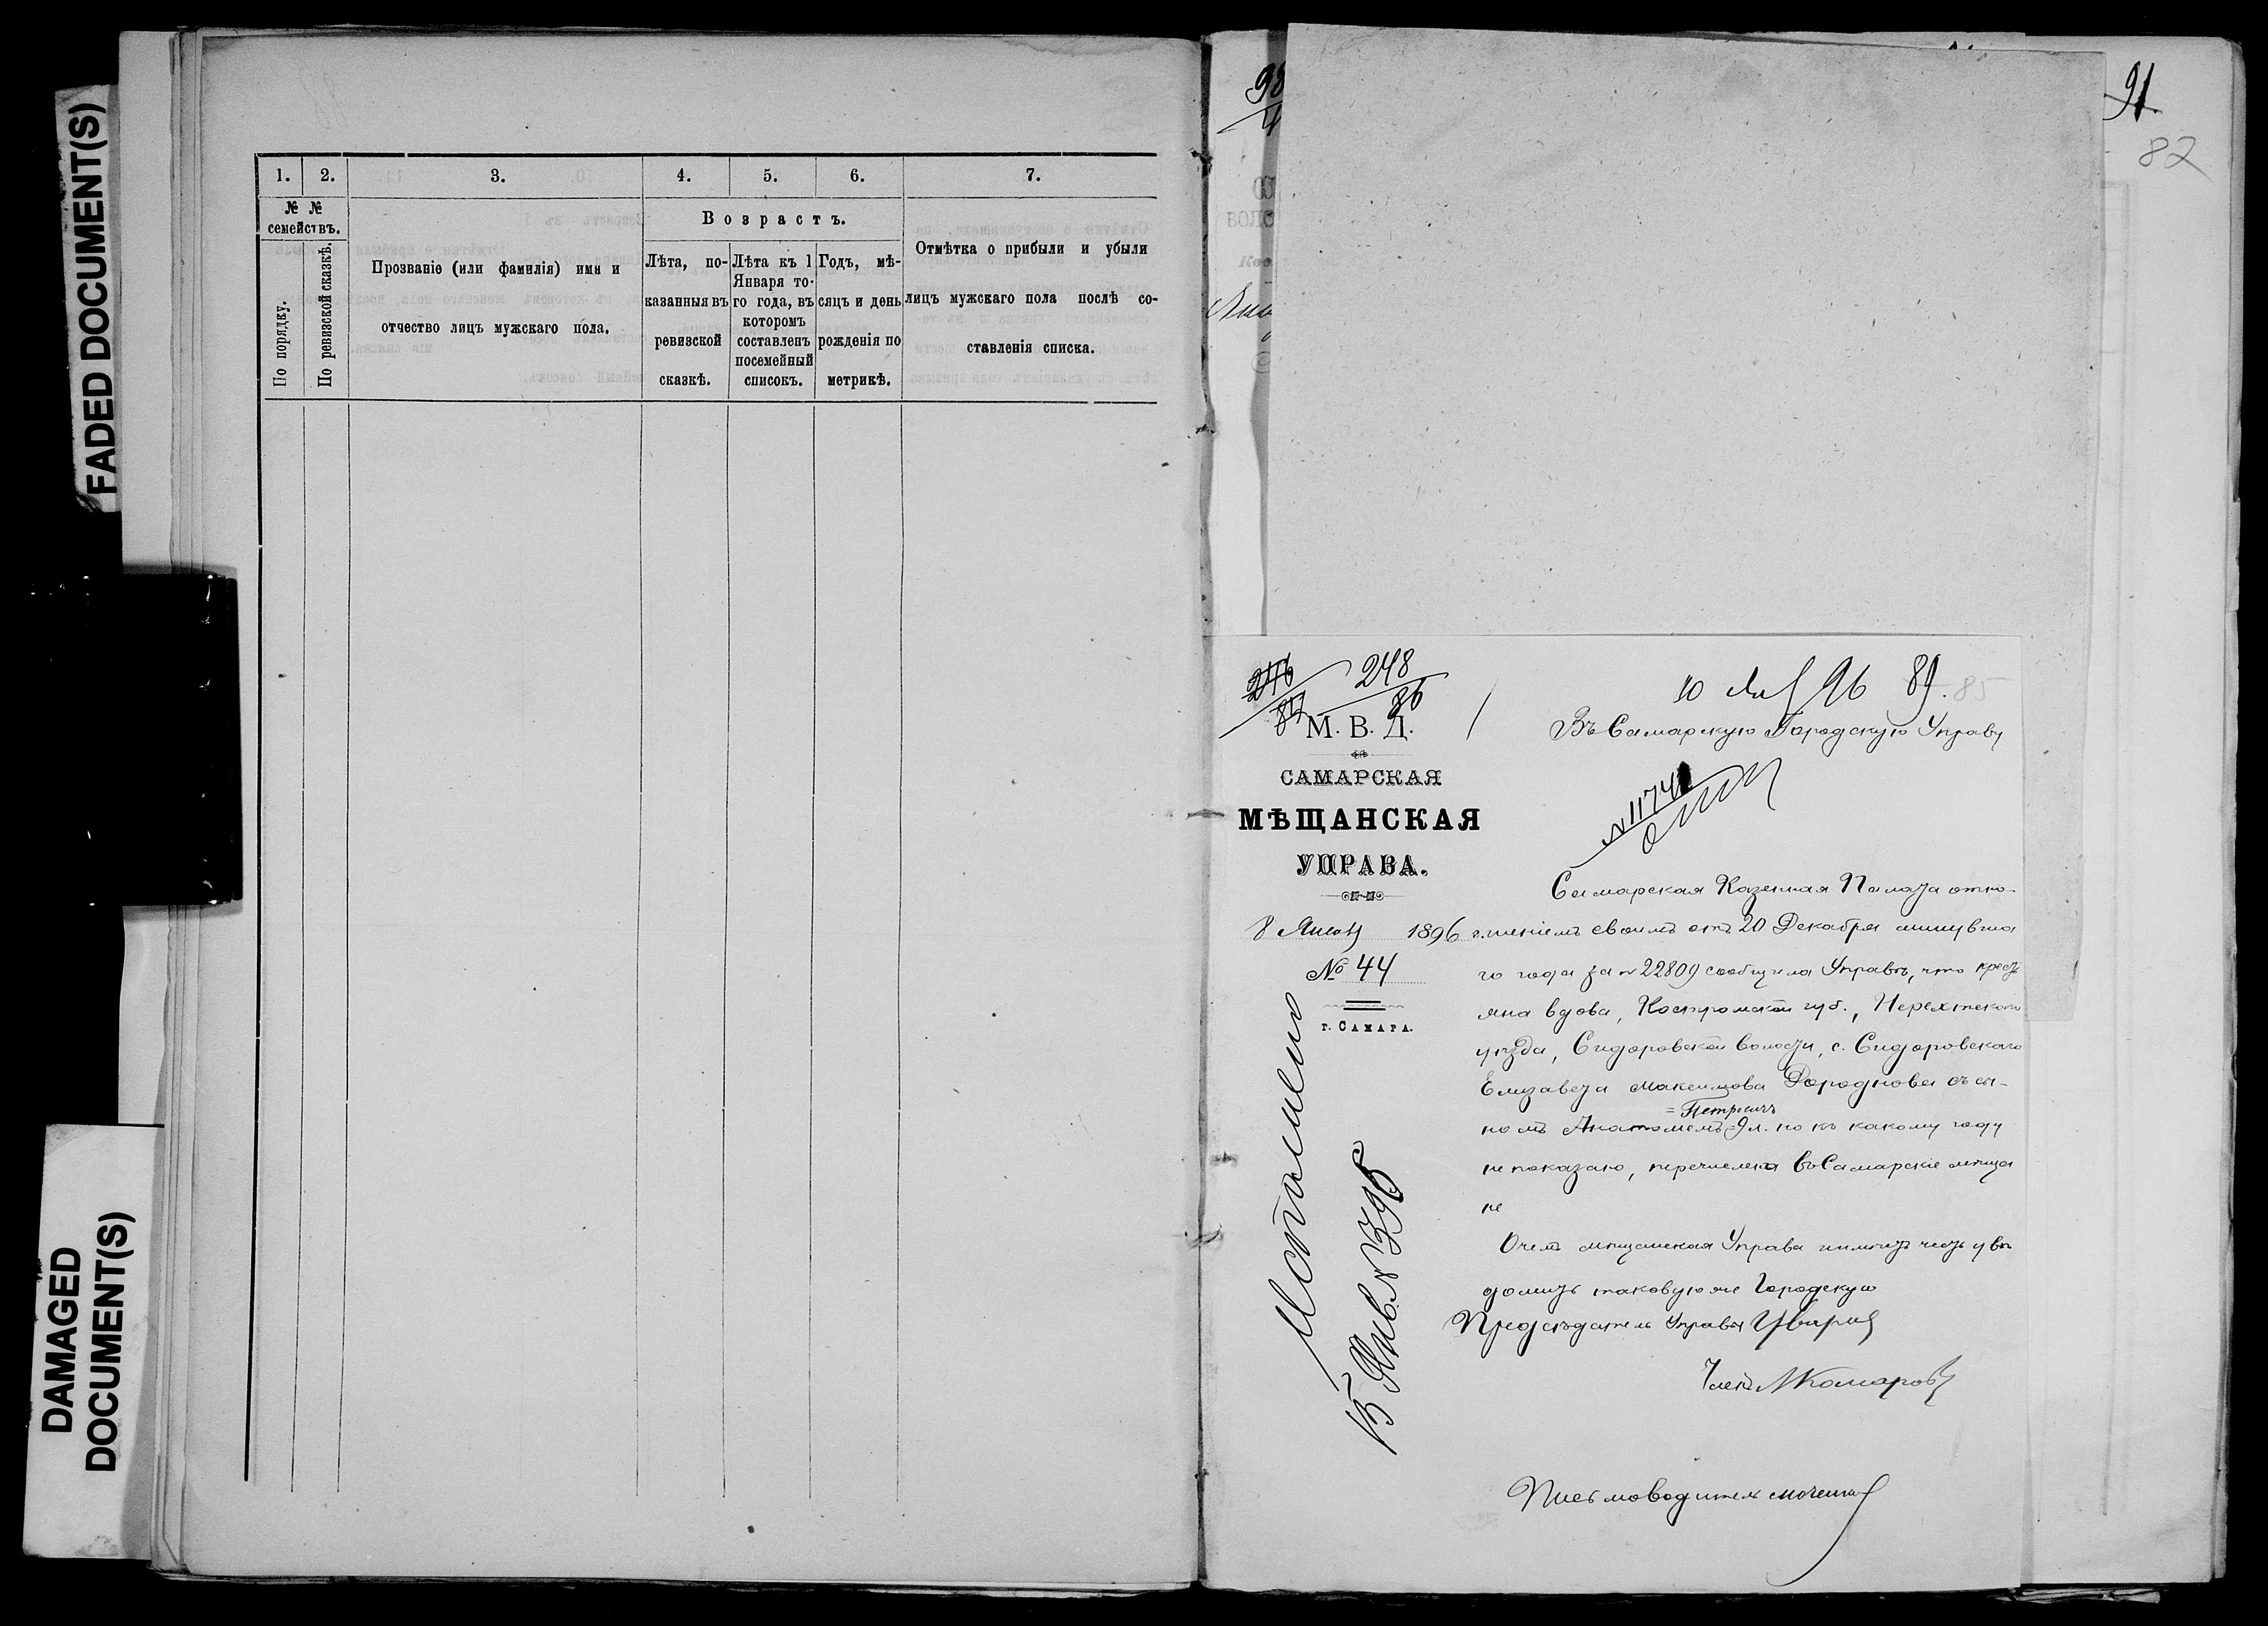 FADED DOCUMENT(S)
DAMAGED
DOCUMENT(S)
1. 2. 3. 4. 5. 6. 7.
№ № семействъ.
По порядку.
По ревизской сказкѣ.
Прозваніе (или фамилія) имя и
отчество лицъ мужскаго пола.
Возрастъ.
Лѣта, по-
казанныя въ
ревизской
сказкѣ.
Лѣта къ 1
Января то-
го года, въ
которомъ
составленъ
посемейный
списокъ.
Годъ, мѣ-
сяцъ и день
рожденія по
метрикѣ.
Отмѣтка о прибыли и убыли
лицъ мужскаго пола послѣ со-
ставленія списка.
98
91
82
246
87
248
86
10 96 89. 85
М. В. Д.
САМАРСКАЯ
МѢЩАНСКАЯ
УПРАВА.
8 Января 1896 г.
№ 44
г. САМАРА.
Въ Самарскую Городскую Управу
Самарская Казенная Палата отно-
шеніемъ своимъ отъ 20 Декабря минувша
го года за № 22809 сообщила Управѣ, что кресть
яна вдова, Костромской губ., Нерехтскаго
уѣзда, Сидоровской волости, с. Сидоровскаго
Елизавета Максимова Дороднова съ сы-
= Петровичъ
номъ Анатоліемъ 9 л. но къ какому году
не показано, перечислена въ Самарскіе мѣща
не
О чемъ мѣщанская Управа имѣетъ честь увѣ
домить таковую же Городскую
Предсѣдатель Управы
Членъ Комаровъ
Письмоводитель
15 Янв. № 1396